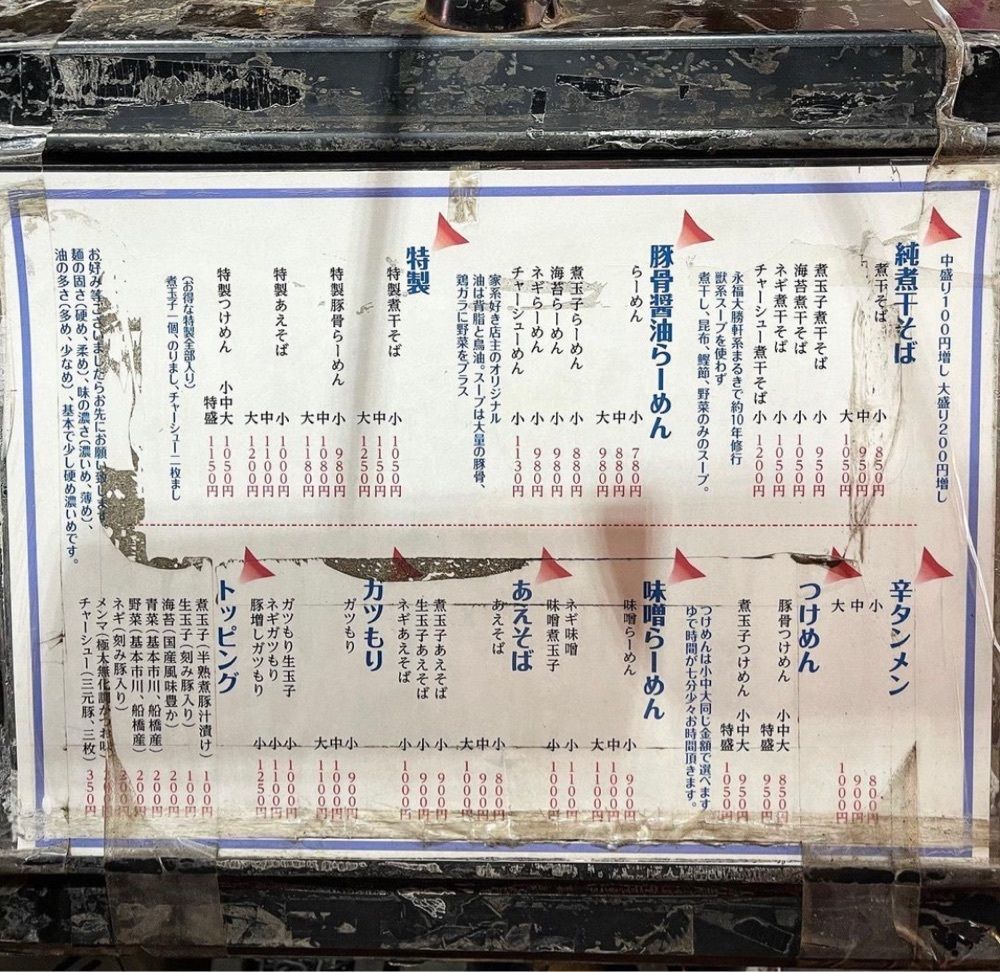 中盛り100円増し 大盛り200円増し
純煮干そば
煮干そば 小 850円
中 950円
大 1050円
煮玉子煮干そば 小 950円
海苔煮干そば 小 1050円
ネギ煮干そば 小 1050円
チャーシュー煮干そば 小 1200円
永福大勝軒系まるきで約10年修行
獣系スープを使わず
煮干し、昆布、鰹節、野菜のみのスープ。
豚骨醤油らーめん
らーめん 小 780円
中 880円
大 980円
煮玉子らーめん 小 880円
海苔らーめん 小 980円
ネギらーめん 小 980円
チャーシューめん 小 1130円
家系好き店主のオリジナル
油は背脂と鳥油。スープは大量の豚骨、
鶏ガラに野菜をプラス
特製
特製煮干そば 小 1050円
中 1150円
大 1250円
特製豚骨らーめん 小 980円
中 1080円
大 1180円
特製あえそば 小 1000円
中 1100円
大 1200円
特製つけめん 小中大 1050円
特盛 1150円
(お得な特製全部入り)
煮玉子一個、のりまし、チャーシュー二枚まし
お好み等ございましたらお先にお願い致します
麺の固さ(硬め、柔め)、味の濃さ(濃いめ、薄め)、
油の多さ(多め、少なめ)、基本で少し硬め濃いめです。
辛タンメン
小 800円
中 900円
大 1000円
つけめん
豚骨つけめん 小中大 850円
特盛 950円
煮玉子つけめん 小中大 950円
特盛 1050円
つけめんは小中大同じ金額で選べます
ゆで時間が七分少々お時間頂きます。
味噌らーめん
味噌らーめん 小 900円
中 1000円
大 1100円
ネギ味噌 小 1100円
味噌煮玉子 小 1000円
あえそば
あえそば 小 800円
中 900円
大 1000円
煮玉子あえそば 小 900円
生玉子あえそば 小 900円
ネギあえそば 小 1000円
ガツもり
ガツもり 小 900円
中 1000円
大 1100円
ガツもり生玉子 小 1000円
ネギガツもり 小 1100円
豚増しガツもり 小 1250円
トッピング
煮玉子(半熟煮豚汁漬け) 100円
生玉子(刻み豚入り) 100円
海苔(国産風味豊か) 200円
青菜(基本市川、船橋産) 200円
野菜(基本市川、船橋産) 200円
ネギ(刻み豚入り) 200円
メンマ(極太無化調かつお味)
チャーシュー(三元豚、三枚) 350円